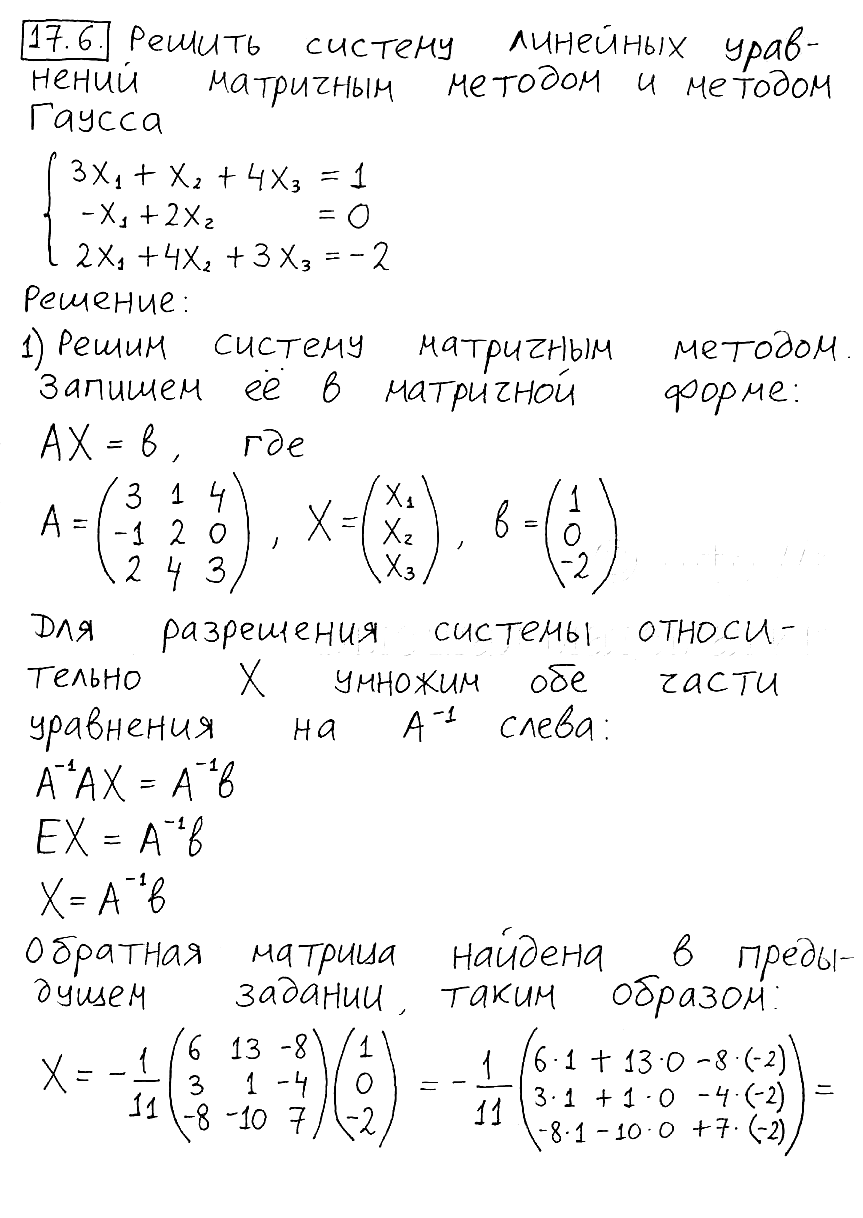 17.6. Решить систему линейных урав-
нений матричным методом и методом
Гаусса
3x₁ + x₂ + 4x₃ = 1
-x₁ + 2x₂ = 0
2x₁ + 4x₂ + 3x₃ = -2
Решение:
1) Решим систему матричным методом.
Запишем её в матричной форме:
AX = b, где
A = (3 1 4; -1 2 0; 2 4 3), X = (x₁; x₂; x₃), b = (1; 0; -2)
Для разрешения системы относи-
тельно X умножим обе части
уравнения на A⁻¹ слева:
A⁻¹AX = A⁻¹b
EX = A⁻¹b
X = A⁻¹b
Обратная матрица найдена в преды-
дущем задании, таким образом:
X = -1/11 (6 13 -8; 3 1 -4; -8 -10 7)(1; 0; -2) = -1/11 (6·1 + 13·0 -8·(-2); 3·1 + 1·0 -4·(-2); -8·1 -10·0 +7·(-2)) =